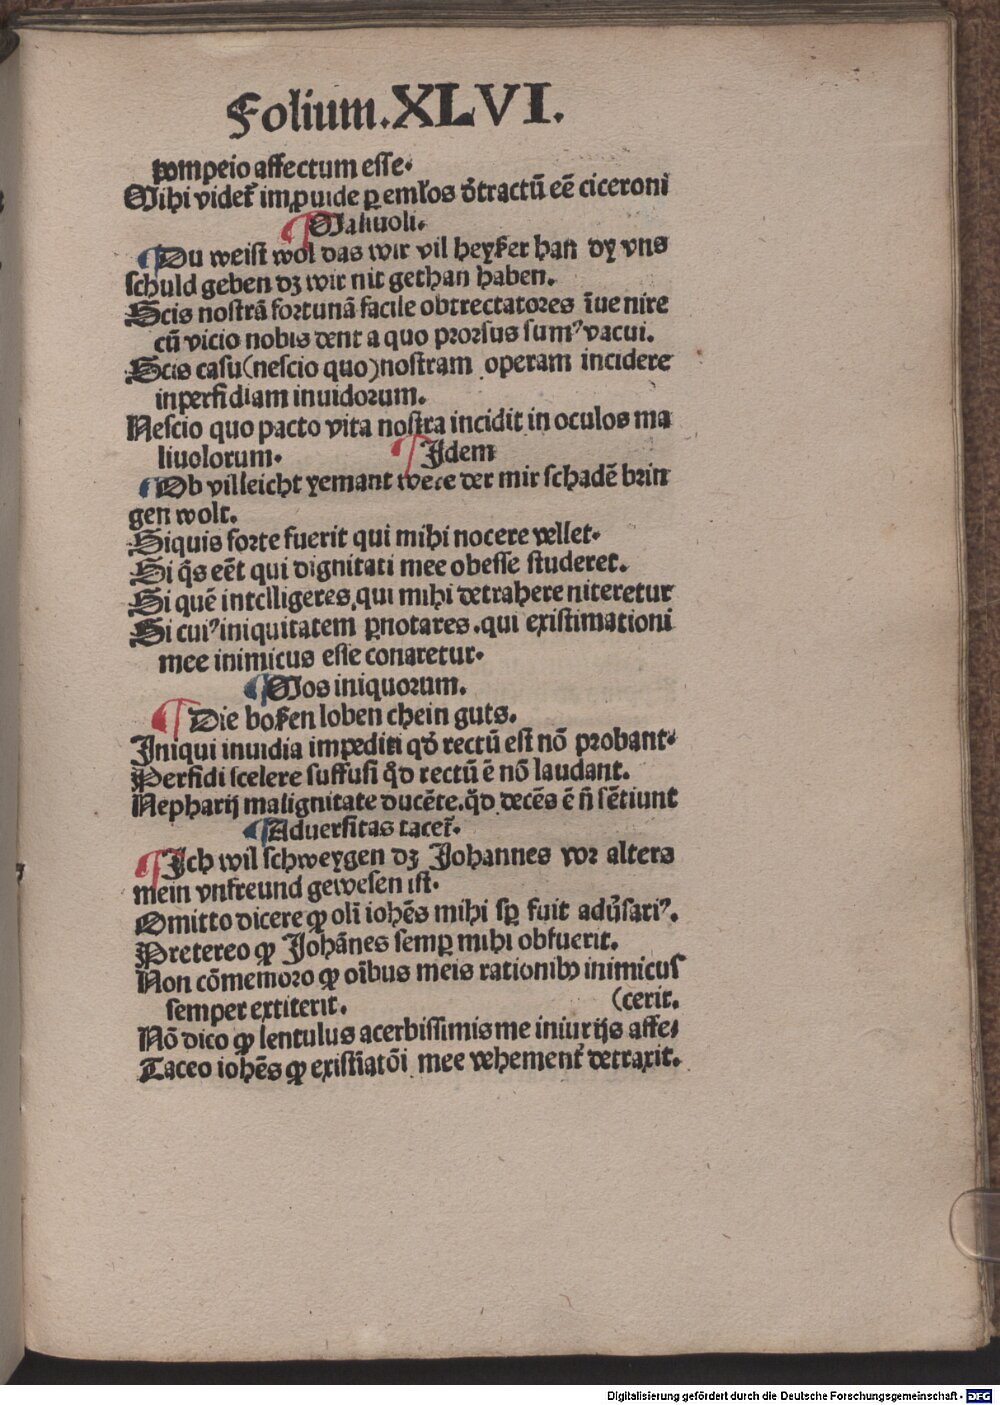 Folium.XLVI.
pompeio affectum esse.
Mihi videt᷑ imꝓuide ꝑ emlos ꝯtractū eē ciceroni
¶Maliuoli.
¶Du weist wol das wir vil heyſſer han dy vns
schuld geben dꝫ wir nit gethan haben.
Scis nostrā fortunā facile obtrectatores īuenire
cū vicio nobis dent a quo prorsus sumꝰ vacui.
Scis casu(nescio quo)nostram operam incidere
inperfidiam inuidorum.
Nescio quo pacto vita nostra incidit in oculos ma
liuolorum. ¶Idem
¶Ob villeicht yemant were der mir schadē brin
gen wolt.
Siquis forte fuerit qui mihi nocere vellet.
Si q̄s eēt qui dignitati mee obesse studeret.
Si quē intelligeres,qui mihi detrahere niteretur
Si cuiꝰ iniquitatem ꝑnotares.qui existimationi
mee inimicus esse conaretur.
¶Mos iniquorum.
¶Die boſen loben chein guts.
Iniqui inuidia impediti qd̄ rectū est nō probant.
Perfidi scelere suffusi q̄d rectū ē nō laudant.
Nepharij malignitate ducēte.q̄d decēs ē n̄ sētiunt
¶Aduersitas tacet᷑.
¶Ich wil schweygen dꝫ Johannes vor alters
mein vnfreund gewesen ist.
Omitto dicere ꝙ oli iohēs mihi sꝑ fuit adũsariꝰ.
Pretereo ꝙ Johānes semꝑ mihi obfuerit.
Non cōmemoro ꝙ oībus meis rationibꝰ inimicus
semper extiterit. (cerit.
Nō dico ꝙ lentulus acerbissimis me iniurijs affe/
Taceo iohēs ꝙ existīatōi mee vehement᷑ detraxit.
Digitalisierung gefördert durch die Deutsche Forschungsgemeinschaft - DFG